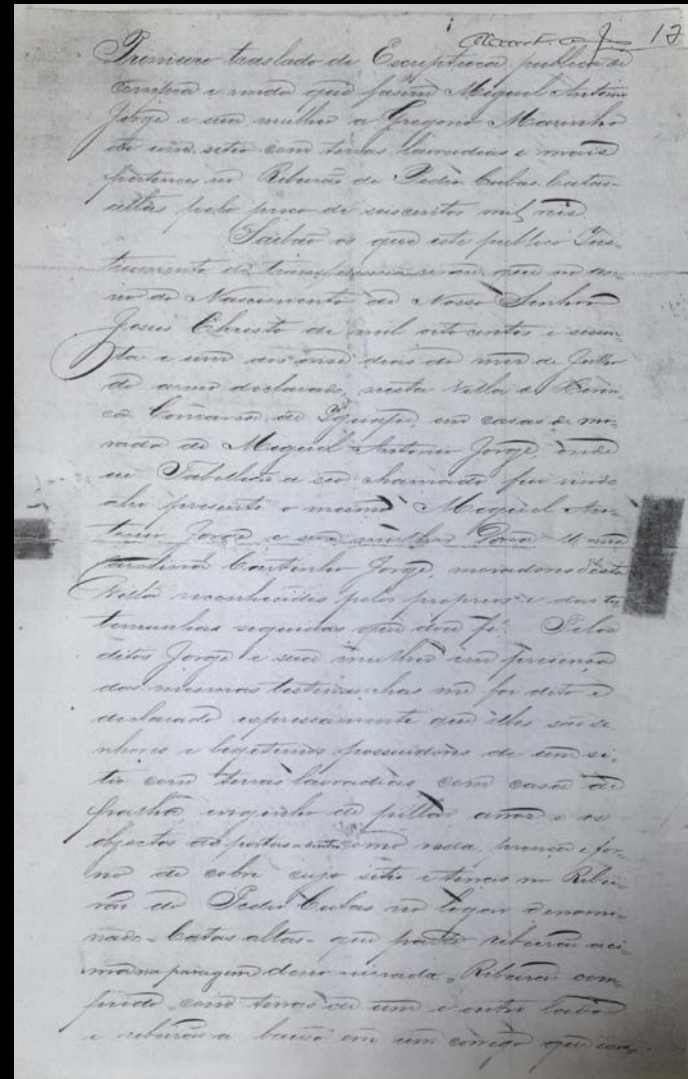 12
Primeiro traslado de Escriptura publica de
compra e venda que fasem Miguel Antonio
Jorge e sua mulher a Gregorio Marinho
de um sitio com terras lavradias e mais
pertences no Ribeirão de Pedro Cubas Catas-
altas pelo preço de seiscentos mil reis.
Saibão os que este publico Ins-
trumento de virem que no an-
no do Nascimento de Nosso Senhor
Jesus Christo de mil oito centos e sessen-
ta e um aos onse dias do mes de Julho
do anno declarado, nesta Villa de Xiriri-
ca Comarca de Iguape, em casas de mo-
rada de Miguel Antonio Jorge, onde
eu Tabellião a seu chamado fui vindo
ahi presente o mesmo Miguel An-
tonio Jorge e sua mulher Dona Maria
Carolina Coutinho Jorge, moradores desta
Villa reconhecidos pelos proprios e das tes
temunhas seguidas que dou fé. Pelos
ditos Jorge e sua mulher em presença
das mesmas testemunhas me foi dito e
declarado expressamente que elles são se-
nhores e legitimos possuidores de um si-
tio com terras lavradias com casa de
palha, enginho de pillar arros e os
objectos de portas a entro como roda, prença e for-
no de cobre cujo sitio e terras no Ribei-
rão do Pedro Cubas no logar denomi-
nado - Catas altas - que parte ribeirão aci-
ma na paragem denominada - Ribeirão com-
prido - com terras de um e outro lado
e ribeirão a baixo em um corrego que